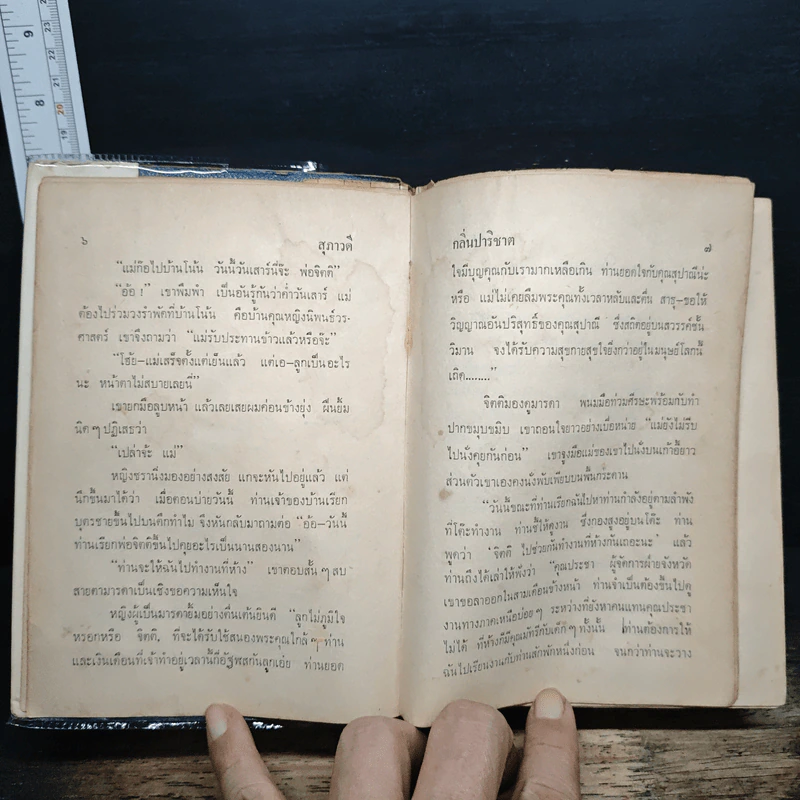 ๖ สุภาวดี
"แม่ก๊อไปบ้านโน้น วันนี้วันเสาร์นี่จ๊ะ พ่อจิตติ"
"อ้อ !" เขาพึมพำ เป็นอันรู้กันว่าค่ำวันเสาร์ แม่
ต้องไปร่วมวงรำพัดที่บ้านโน้น คือบ้านคุณหญิงนิพนธ์วร-
ศาสตร์ เขาจึงถามว่า "แม่รับประทานข้าวแล้วหรือจ๊ะ"
"โธ้ย–แม่เสร็จตั้งแต่เย็นแล้ว แต่เอ–ลูกเป็นอะไร
นะ หน้าตาไม่สบายเลยนี่"
เขายกมือลูบหน้า แล้วเลยเสยผมค่อนข้างยุ่ง ฝืนยิ้ม
นิดๆ ปฏิเสธว่า
"เปล่าจ้ะ แม่"
หญิงชรานิ่งมองอย่างสงสัย แกจะหันไปอยู่แล้ว แต่
นึกขึ้นมาได้ว่า เมื่อตอนบ่ายวันนี้ ท่านเจ้าของบ้านเรียก
บุตรชายขึ้นไปบนตึกทำไม จึงหันกลับมาถามต่อ "อ้อ–วันนี้
ท่านเรียกพ่อจิตติขึ้นไปคุยอะไรเป็นนานสองนาน"
"ท่านจะให้ฉันไปทำงานที่ห้าง" เขาตอบสั้นๆ สบ
สายตามารดาเป็นเชิงขอความเห็นใจ
หญิงผู้เป็นมารดายิ้มอย่างตื่นเต้นยินดี "ลูกไม่ภูมิใจ
หรอกหรือ จิตติ, ที่จะได้รับใช้สนองพระคุณใกล้ๆ ท่าน
และเงินเดือนที่เจ้าทำอยู่เวลานี้ก็อัฐพสกันลูกเอ๋ย ท่านยอด
กลิ่นปาริชาต ๗
ใจมีบุญคุณกับเรามากเหลือเกิน ท่านยอดใจกับคุณสุปาณีน่ะ
หรือ แม่ไม่เคยลืมพระคุณทั้งเวลาหลับและตื่น สาธุ–ขอให้
วิญญาณอันบริสุทธิ์ของคุณสุปาณี ซึ่งสถิตอยู่บนสวรรค์ชั้น
วิมาน จงได้รับความสุขกายสุขใจยิ่งกว่าอยู่ในมนุษย์โลกนี้
เถิด........"
จิตติมองดูมารดา พนมมือท่วมศีรษะพร้อมกับทำ
ปากขมุบขมิบ เขาถอนใจยาวอย่างเบื่อหน่าย "แม่ยังไม่รีบ
ไปนั่งคุยกันก่อน" เขาจูงมือแม่ของเขาไปนั่งบนเก้าอี้ยาว
ส่วนตัวเขาเองคงนั่งพับเพียบบนพื้นกระดาน
"วันนี้ขณะที่ท่านเรียกฉันไปหาท่านกำลังอยู่ตามลำพัง
ที่โต๊ะทำงาน ท่านชี้ให้ดูงาน ซึ่งกองสูงอยู่บนโต๊ะ ท่าน
พูดว่า 'จิตติ ไปช่วยกันทำงานที่ห้างกันเถอะนะ' แล้ว
ท่านถึงได้เล่าให้ฟังว่า "คุณประชา ผู้จัดการฝ่ายจังหวัด
เขาขอลาออกในสามเดือนข้างหน้า ท่านจำเป็นต้องขึ้นไปดู
งานทางภาคเหนือบ่อยๆ ระหว่างที่ยังหาคนแทนคุณประชา
ไม่ได้ ที่ห้างก็มีคุณมัทรีกับเด็กๆ ทั้งนั้น ท่านต้องการให้
ฉันไปเรียนงานกับท่านสักพักหนึ่งก่อน จนกว่าท่านจะวาง